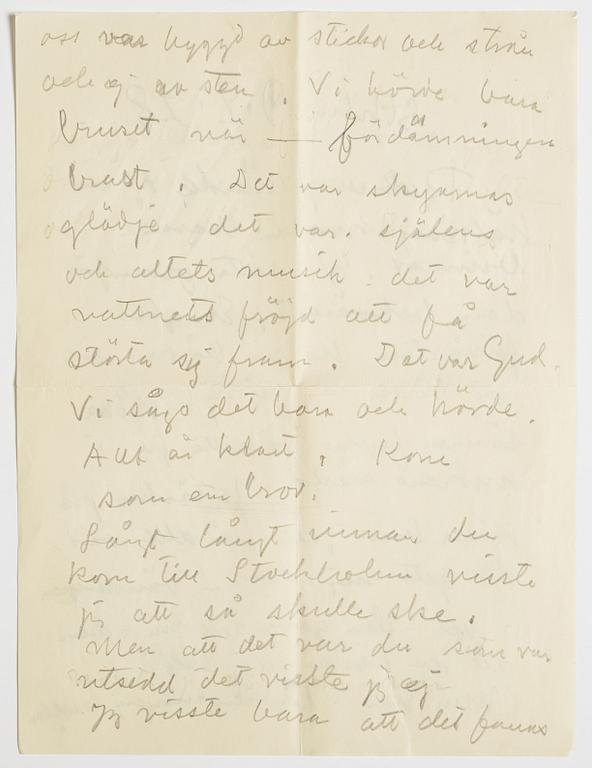 oss var byggd av stickor och strån
och ej av sten. Vi hörde bara
bruset när — fördämningen
brast. Det var skyarnas
glädje det var själens
och altets musik. det var
vattnets fröjd att få
störta sig fram. Det var Gud.
Vi sågo det bara och hörde.
Allt är klart. Kom
som en bror.
Långt långt innan du
kom till Stockholm visste
jag att så skulle ske.
Men att det var du som var
utsedd det visste jag ej
Jag visste bara att det fanns